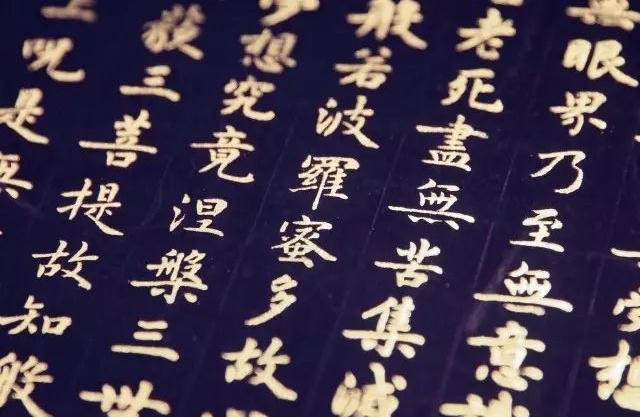 無眼界乃至無意
老死盡無苦集滅
般若波羅蜜多故
想究竟涅槃三世
藐三菩提故知般
上呪是無